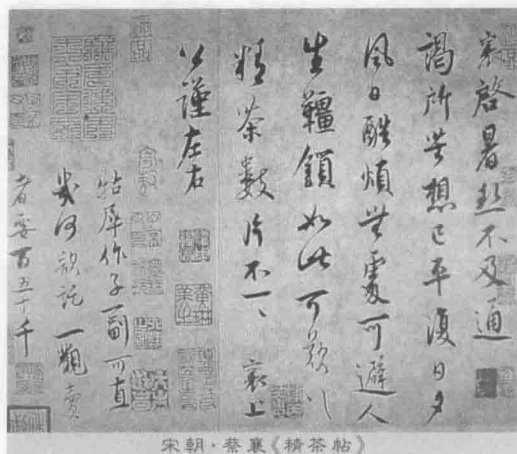 襄啓暑熱不及通
謁所苦想已平復日夕
風日酷煩無處可避人
生韁鎖如此可歎可歎
精茶數片不一一襄上
公謹左右
牯犀作子一副可直
幾何欲託一觀賣
者要百五十千
宋朝·蔡襄《精茶帖》